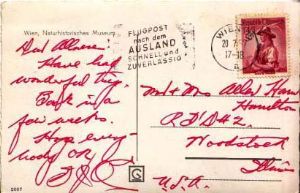 Wien, Naturhistorisches Museum
FLUGPOST
nach dem
AUSLAND
SCHNELL und
ZUVERLÄSSIG
WIEN
20
17-18
Have had
wonderful trip.
Back in a
few weeks.
Hope every-
body OK
Mr + Mrs Allan Ham
Hamilton
R D #2
Woodstock
Illinois
U.S.A.